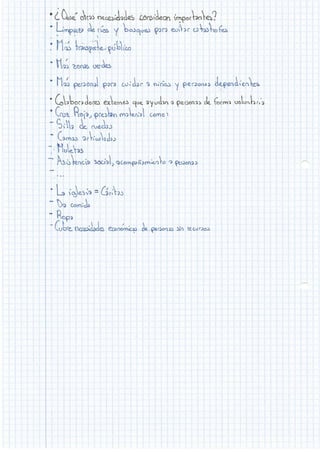 * ¿Qué otras necesidades consideran importantes?
* Limpieza de ríos y bosques para evitar catástrofes
* Más transporte público
* Más zonas verdes
* Más personal para cuidar a niños y personas dependientes
* Colaboradores externos que ayudan a personas de forma voluntaria
* Cruz Roja, prestan material como:
- Silla de ruedas
- Camas articuladas
- Muletas
- Asistencia social, acompañamiento a personas
- ...
* La iglesia = Cáritas
- Da comida
- Ropa
- Cubre necesidades económicas de personas sin recursos